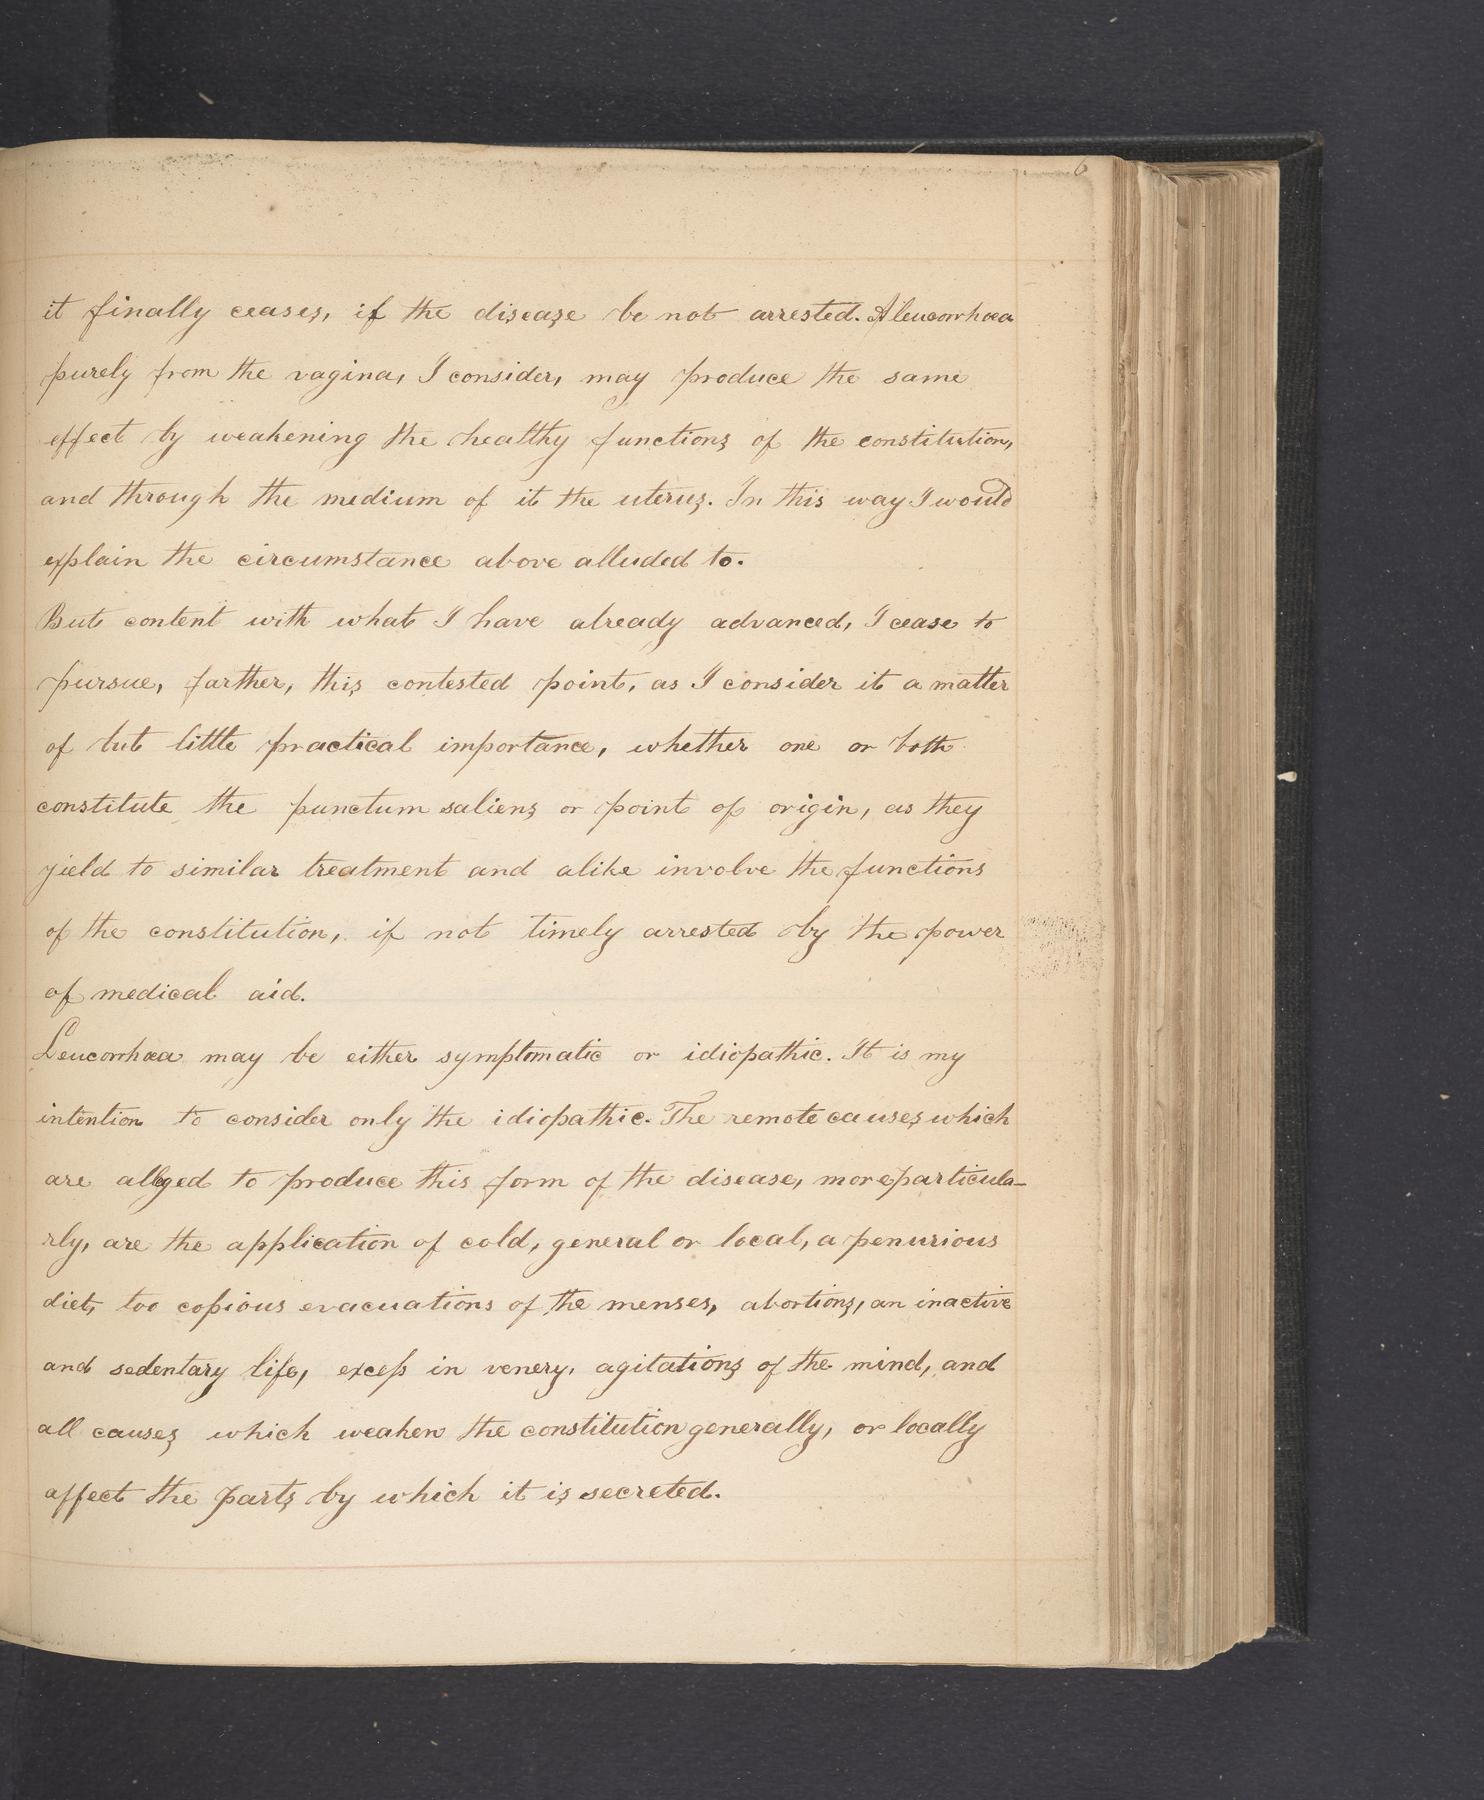 6
it finally ceases, if the disease be not arrested. A leucorrhœa
purely from the vagina, I consider, may produce the same
effect by weakening the healthy functions of the constitution,
and through the medium of it the uterus. In this way I would
explain the circumstance above alluded to.
But content with what I have already advanced, I cease to
pursue, farther, this contested point, as I consider it a matter
of but little practical importance, whether one or both
constitute the punctum saliens or point of origin, as they
yield to similar treatment and alike involve the functions
of the constitution, if not timely arrested by the power
of medical aid.
Leucorrhœa may be either symptomatic or idiopathic. It is my
intention to consider only the idiopathic. The remote causes which
are alleged to produce this form of the disease, more particula-
rly, are the application of cold, general or local, a penurious
diet, too copious evacuations of the menses, abortions, an inactive
and sedentary life, excess in venery, agitations of the mind, and
all causes which weaken the constitution generally, or locally
affect the parts by which it is secreted.